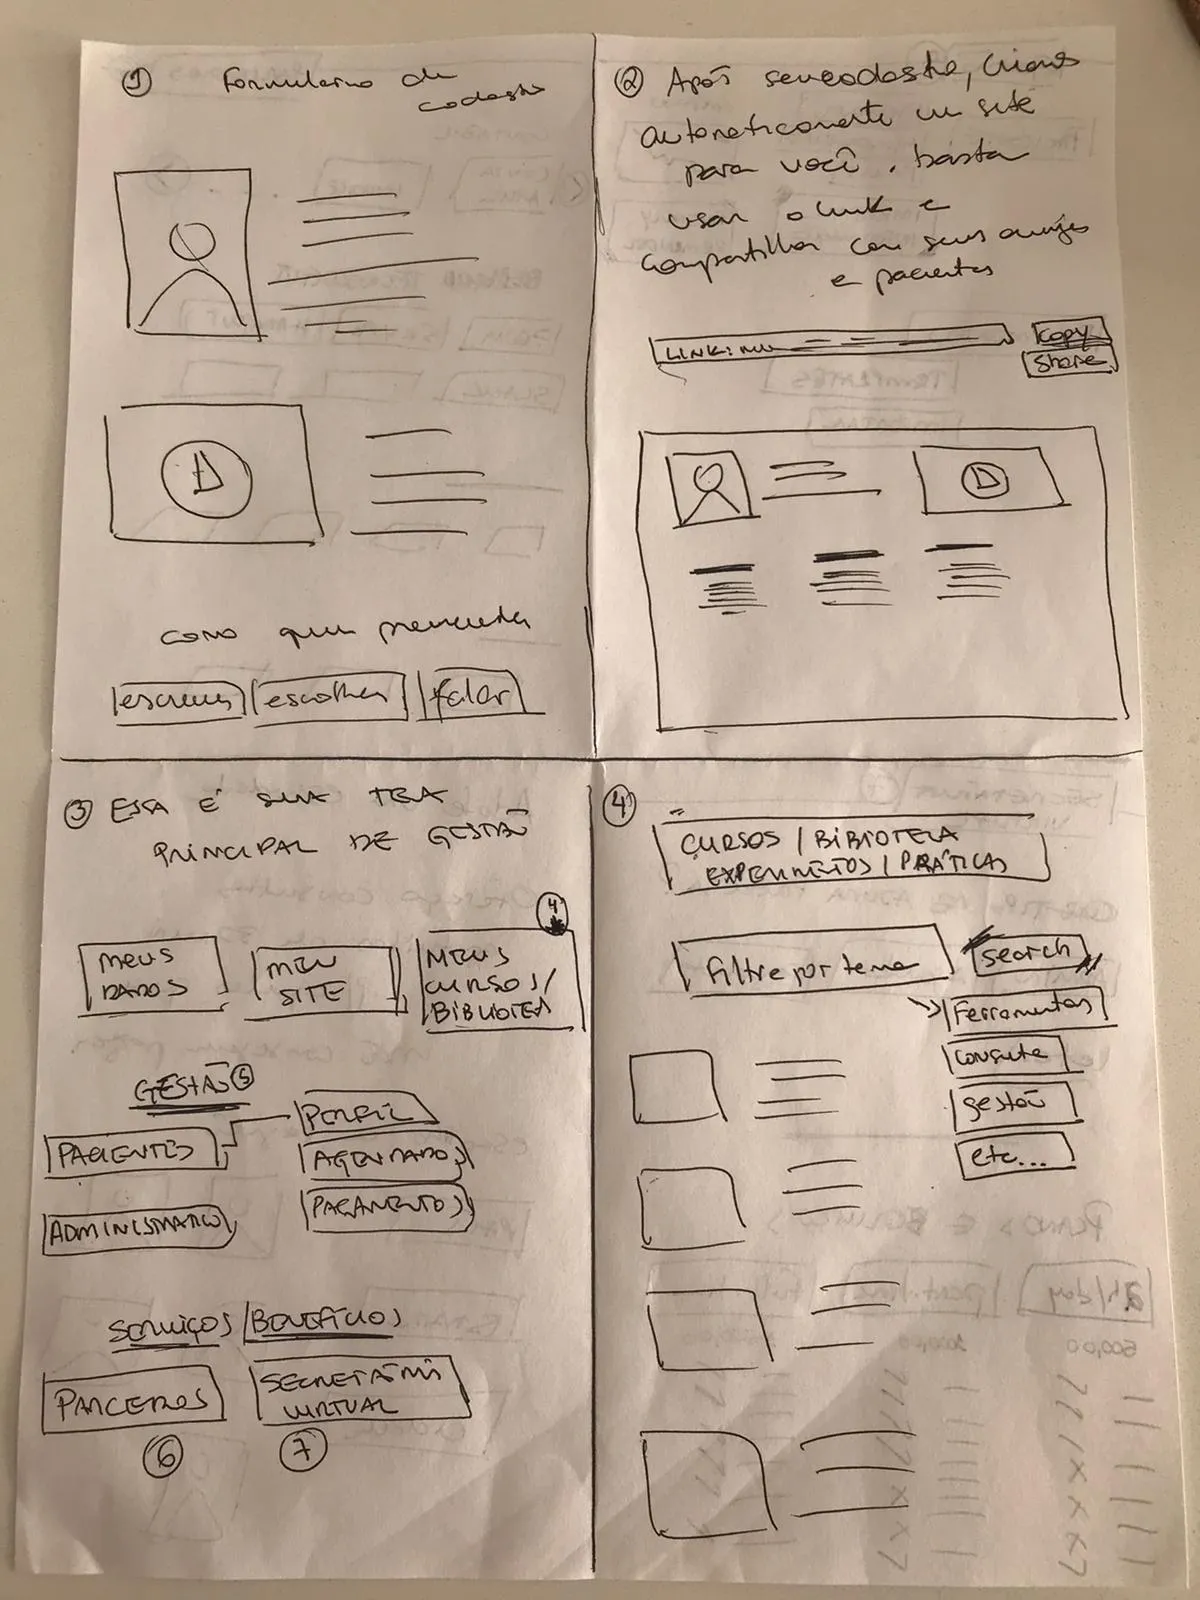 ① Formulario de
cadastro
como quer preencher
escrever escolher falar
② Após seu cadastro, criamos
automaticamente um site
para você. basta
usar o link e
compartilhar com seus amigos
e pacientes
LINK:
copy
share
③ ESSA É SUA TELA
PRINCIPAL DE GESTÃO
4
MEUS
DADOS
MEU
SITE
MEUS
CURSOS/
BIBLIOTECA
GESTÃO ⑤
PACIENTES
PERFIL
AGENDADOS
PAGAMENTOS
ADMINISTRATIVO
SERVIÇOS/BENEFÍCIOS
PARCEIROS
SECRETÁRIA
VIRTUAL
⑥ ⑦
④
CURSOS / BIBLIOTECA
EXPERIMENTOS / PRÁTICAS
Filtre por tema
search
Ferramentas
consulta
gestão
etc...